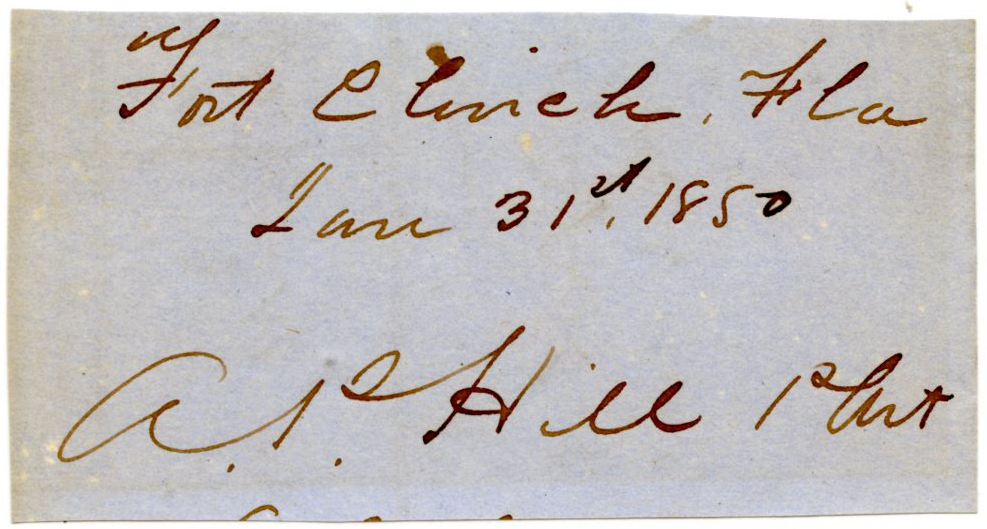 Fort Clinch, Fla
Jan 31st, 1850
A.P. Hill 1st Art